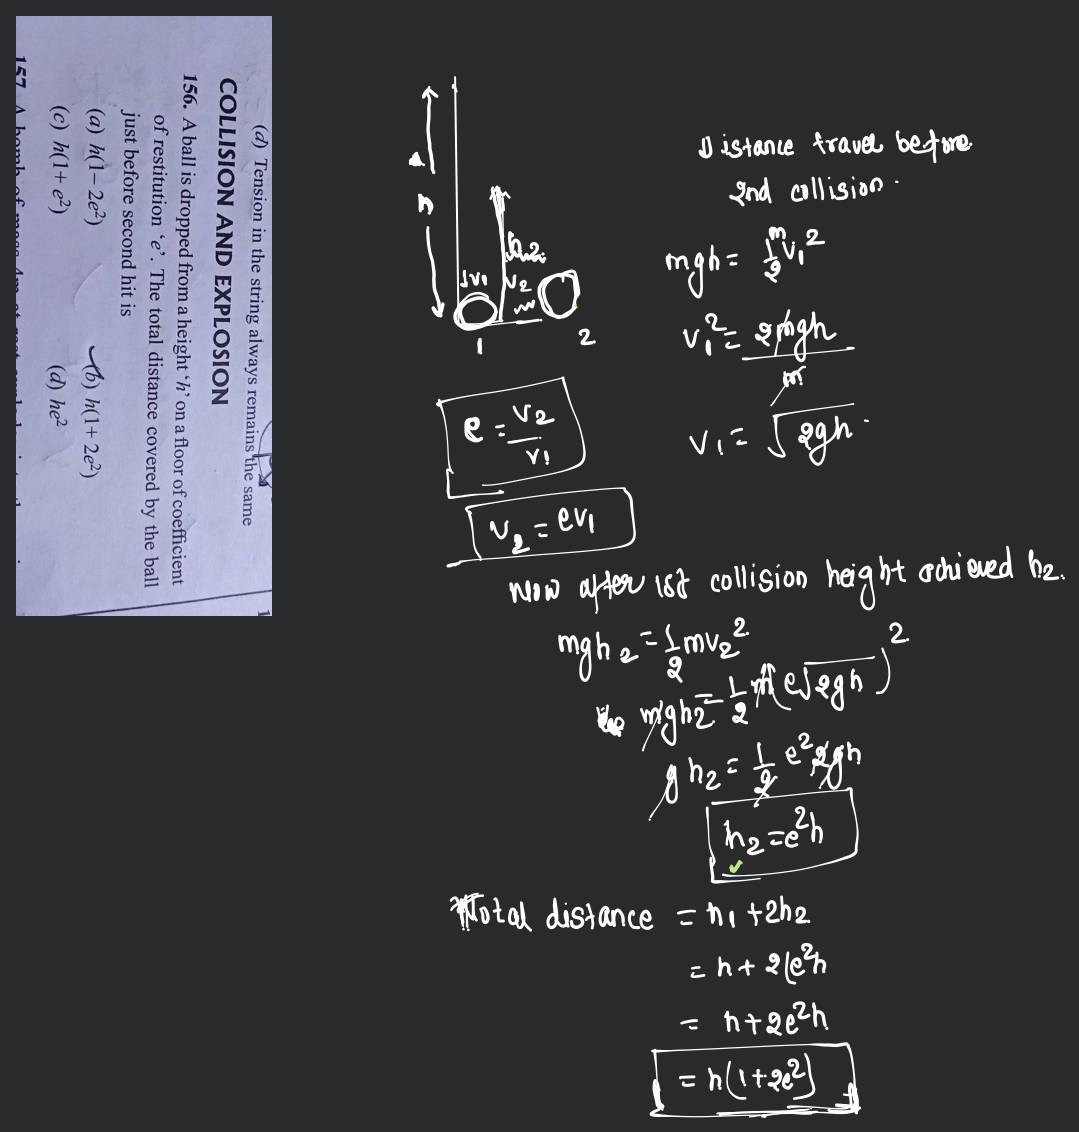 (d) Tension in the string always remains the same
COLLISION AND EXPLOSION
156. A ball is dropped from a height 'h' on a floor of coefficient
of restitution 'e'. The total distance covered by the ball
just before second hit is
(a) h(1– 2e²) (b) h(1+ 2e²)
(c) h(1+ e²) (d) he²
157. A bomb of mass 4m at rest
h
h2
v1
v2
1 2
e = v2/v1
v2 = ev1
Distance travel before
2nd collision.
mgh = 1/2 m v1²
v1² = 2mgh/m
v1 = √2gh.
Now after 1st collision height achieved h2.
mgh2 = 1/2 mv2²
mgh2 = 1/2 m(e√2gh)²
gh2 = 1/2 e² 2gh
h2 = e²h
Total distance = h1 + 2h2
= h + 2(e²h
= h + 2e²h
= h(1+2e²)